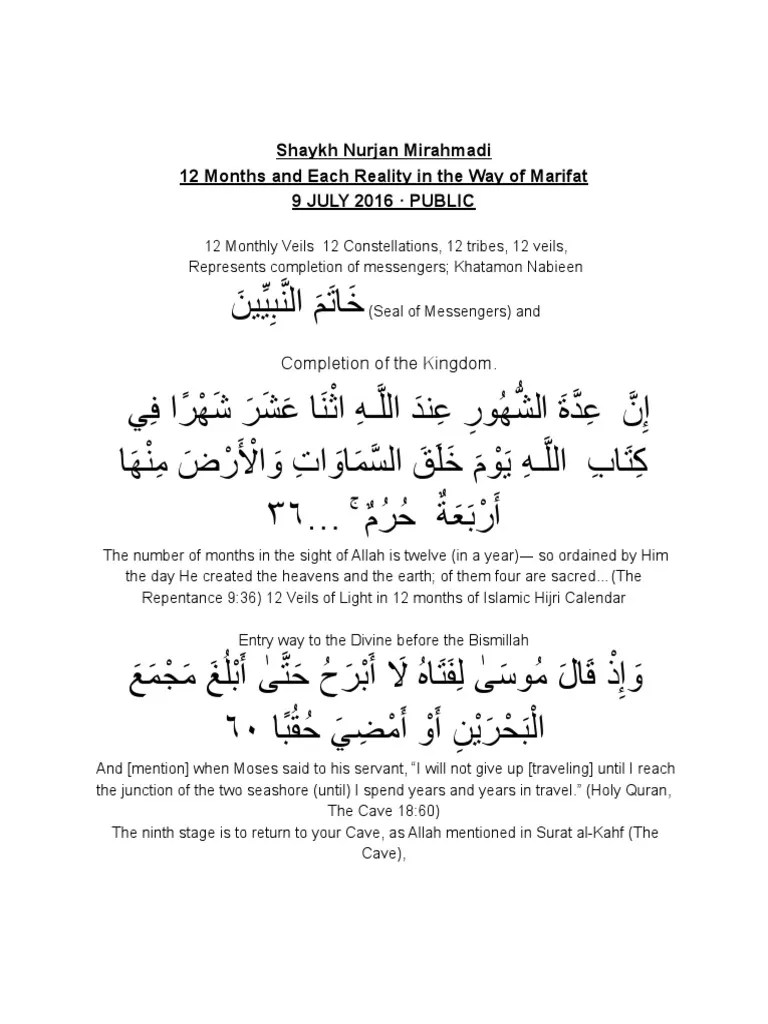 Shaykh Nurjan Mirahmadi
12 Months and Each Reality in the Way of Marifat
9 JULY 2016 · PUBLIC
12 Monthly Veils  12 Constellations, 12 tribes, 12 veils,
Represents completion of messengers; Khatamon Nabieen
خَاتَمَ النَّبِيِّينَ (Seal of Messengers) and
Completion of the Kingdom.
إِنَّ عِدَّةَ الشُّهُورِ عِندَ اللَّـهِ اثْنَا عَشَرَ شَهْرًا فِي
كِتَابِ اللَّـهِ يَوْمَ خَلَقَ السَّمَاوَاتِ وَالْأَرْضَ مِنْهَا
أَرْبَعَةٌ حُرُمٌ ۚ ...٣٦
The number of months in the sight of Allah is twelve (in a year)— so ordained by Him
the day He created the heavens and the earth; of them four are sacred... (The
Repentance 9:36) 12 Veils of Light in 12 months of Islamic Hijri Calendar
Entry way to the Divine before the Bismillah
وَإِذْ قَالَ مُوسَىٰ لِفَتَاهُ لَا أَبْرَحُ حَتَّىٰ أَبْلُغَ مَجْمَعَ
الْبَحْرَيْنِ أَوْ أَمْضِيَ حُقُبًا ٦٠
And [mention] when Moses said to his servant, “I will not give up [traveling] until I reach
the junction of the two seashore (until) I spend years and years in travel.” (Holy Quran,
The Cave 18:60)
The ninth stage is to return to your Cave, as Allah mentioned in Surat al-Kahf (The
Cave),